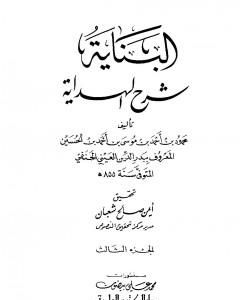 البناية
شرح الهداية
تأليف
محمود بن أحمد بن موسى بن أحمد بن الحسين
المعروف ببدر الدين العيني الحنفي
المتوفى سنة ٨٥٥ هـ
تحقيق
أيمن صالح شعبان
الجزء الثالث
منشورات
محمد علي بيضون
دار الكتب العلمية